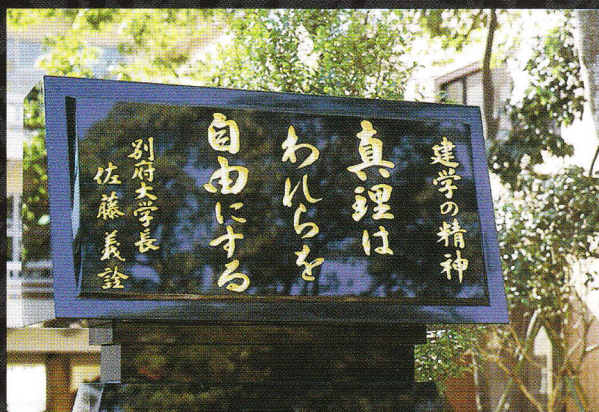 建学の精神
真理は
われらを
自由にする
別府大学長
佐藤義詮